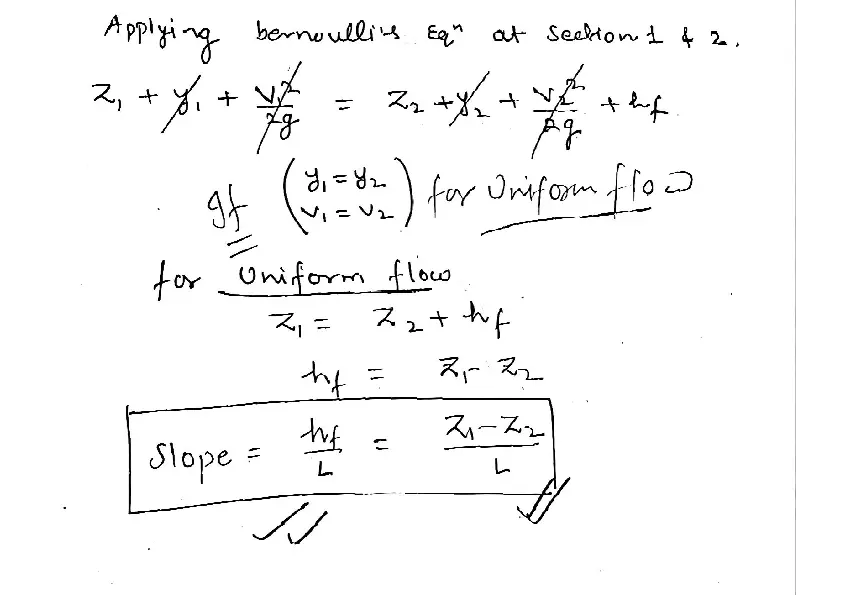 Applying bernoulli's Eqn at Section 1 & 2.
Z₁ + y₁ + V₁²/2g = Z₂ + y₂ + V₂²/2g + hf
If (y₁ = y₂ V₁ = V₂) for Uniform flow
for Uniform flow
Z₁ = Z₂ + hf
hf = Z₁ - Z₂
Slope = hf/L = Z₁ - Z₂/L